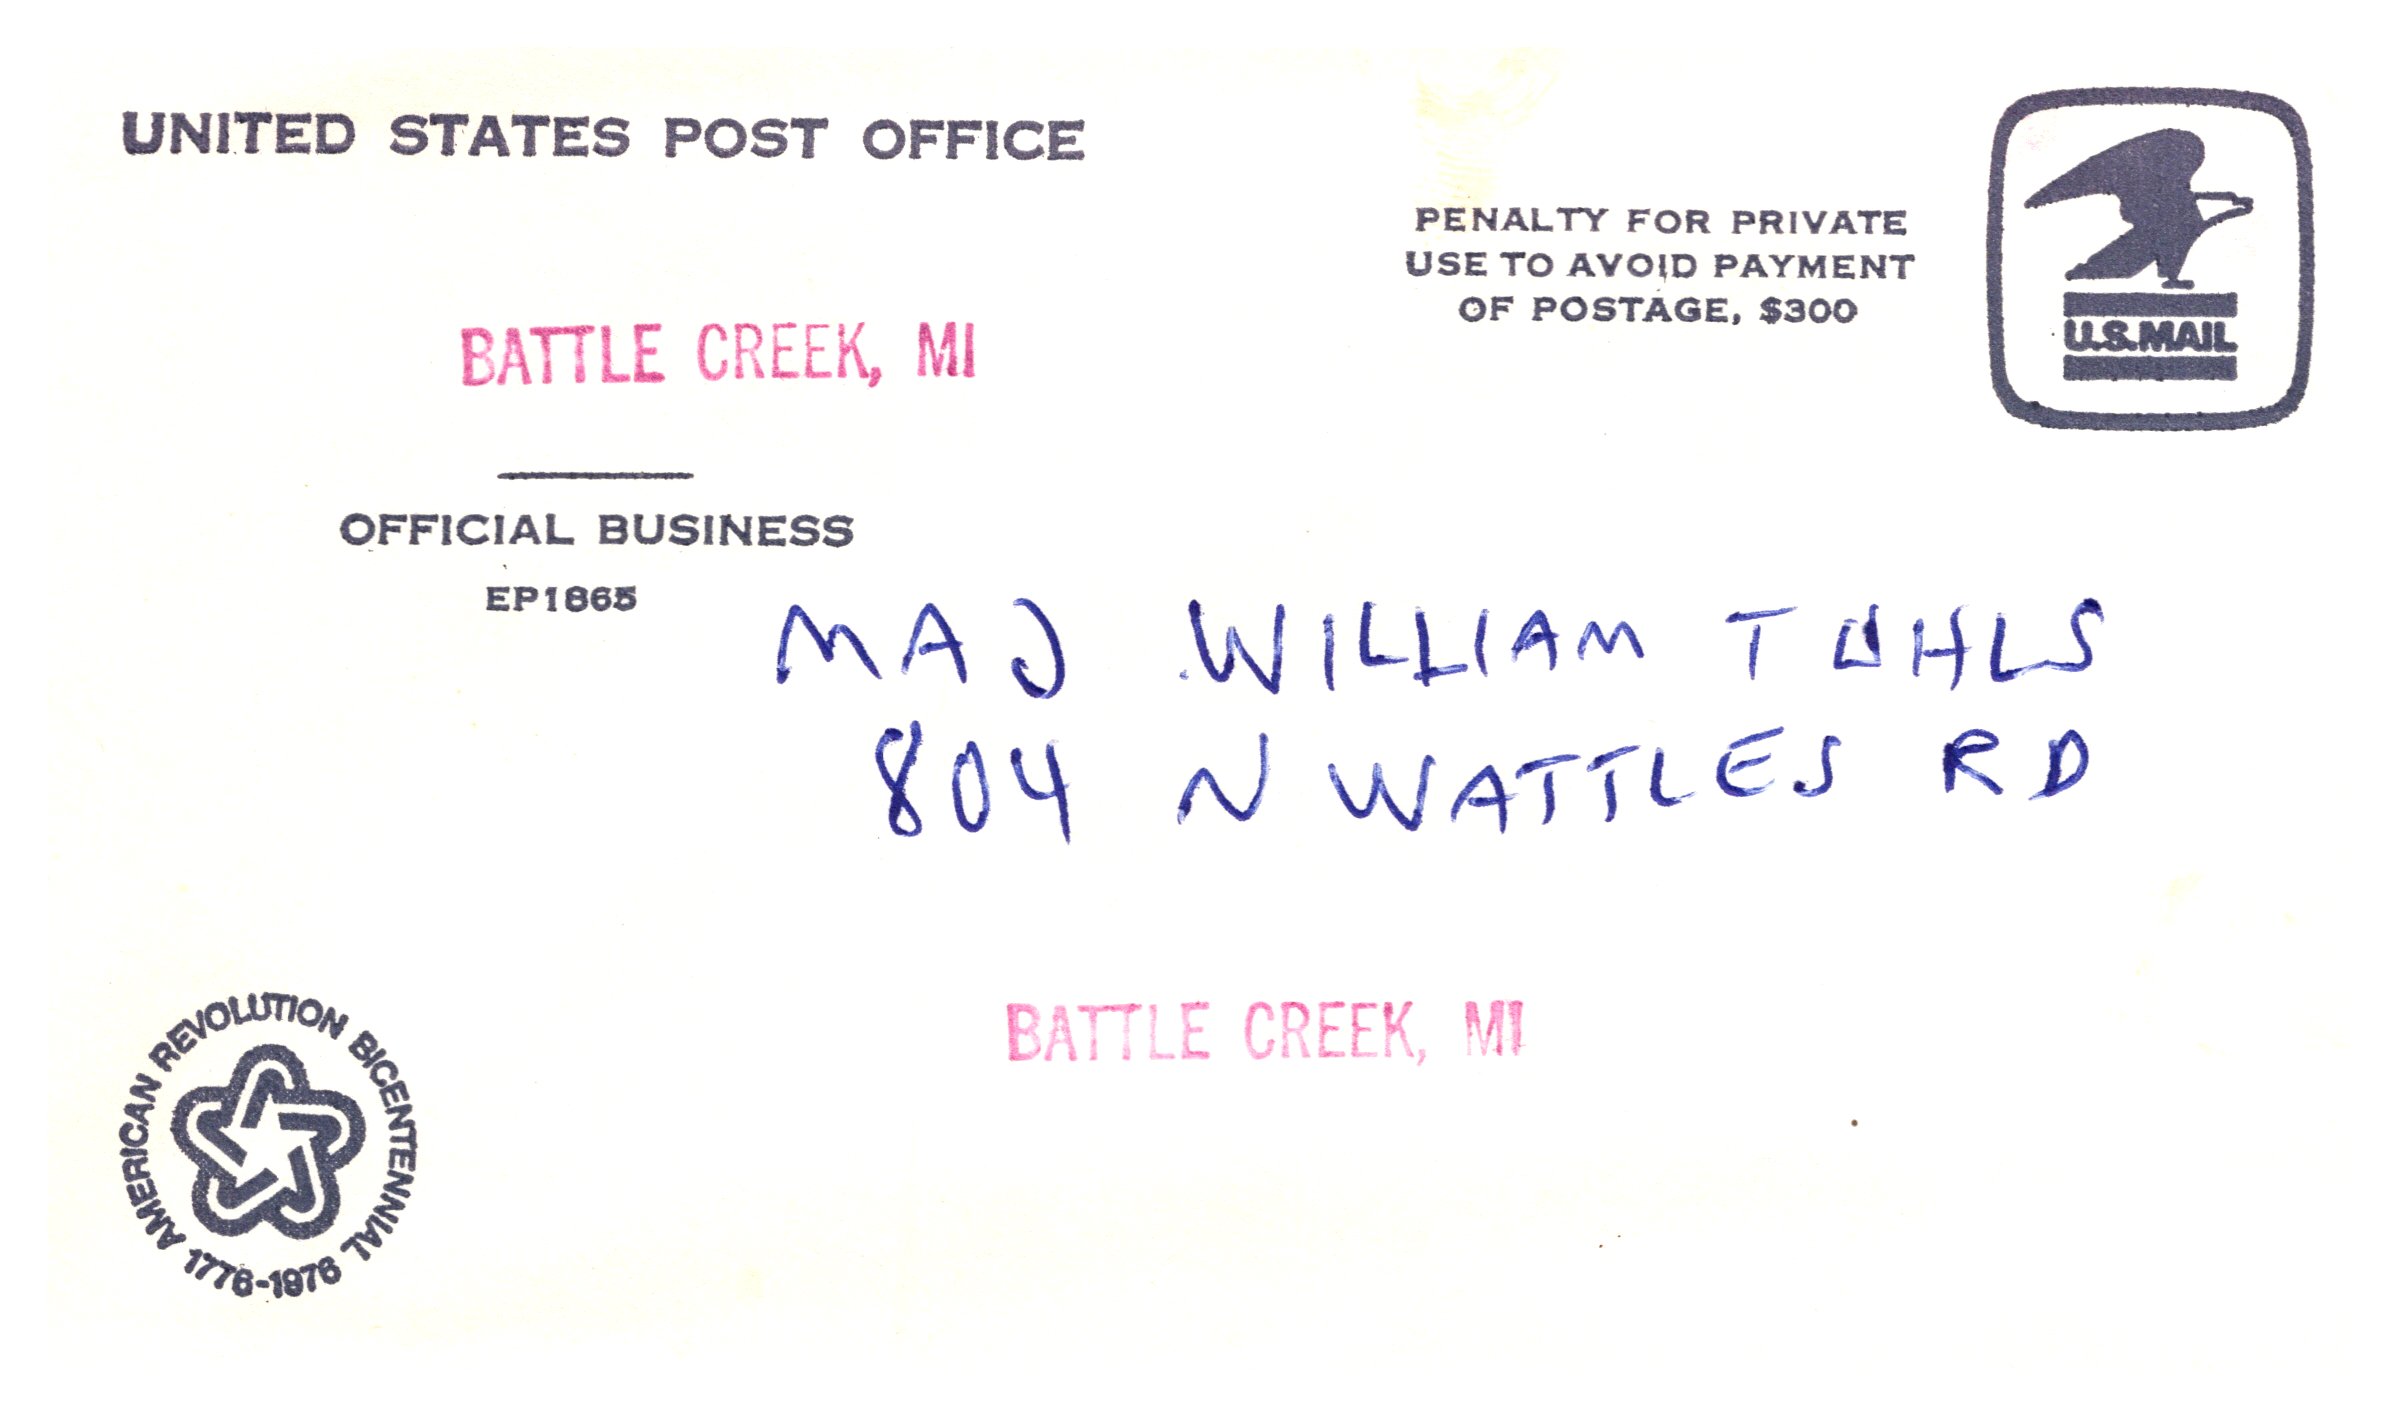 UNITED STATES POST OFFICE
PENALTY FOR PRIVATE
USE TO AVOID PAYMENT
OF POSTAGE, $300
U.S.MAIL
BATTLE CREEK, MI
OFFICIAL BUSINESS
EP1865
MAJ WILLIAM T UHLS
804 N WATTLES RD
BATTLE CREEK, MI
AMERICAN REVOLUTION BICENTENNIAL
1776-1976